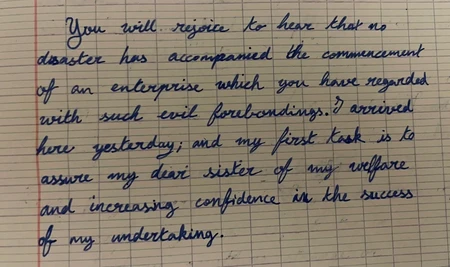 You will rejoice to hear that no
disaster has accompanied the commencement
of an enterprise which you have regarded
with such evil forebondings. I arrived
here yesterday; and my first task is to
assure my dear sister of my welfare
and increasing confidence in the success
of my undertaking.